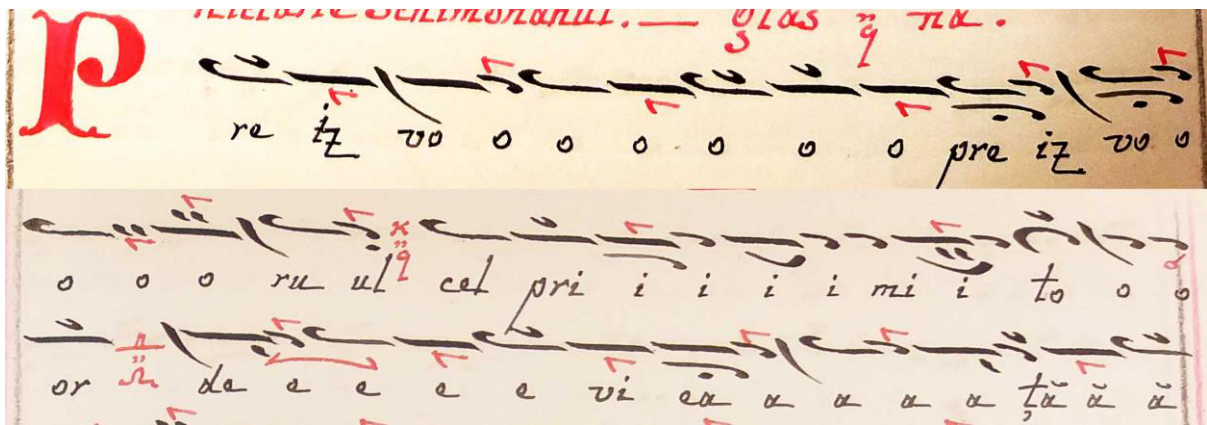 glas na.
P re iz vo o o o o o o pre iz vo o
o o o ru ul cel pri i i i i mi i to o o
or de e e e e vi ea a a a a ță ă ă